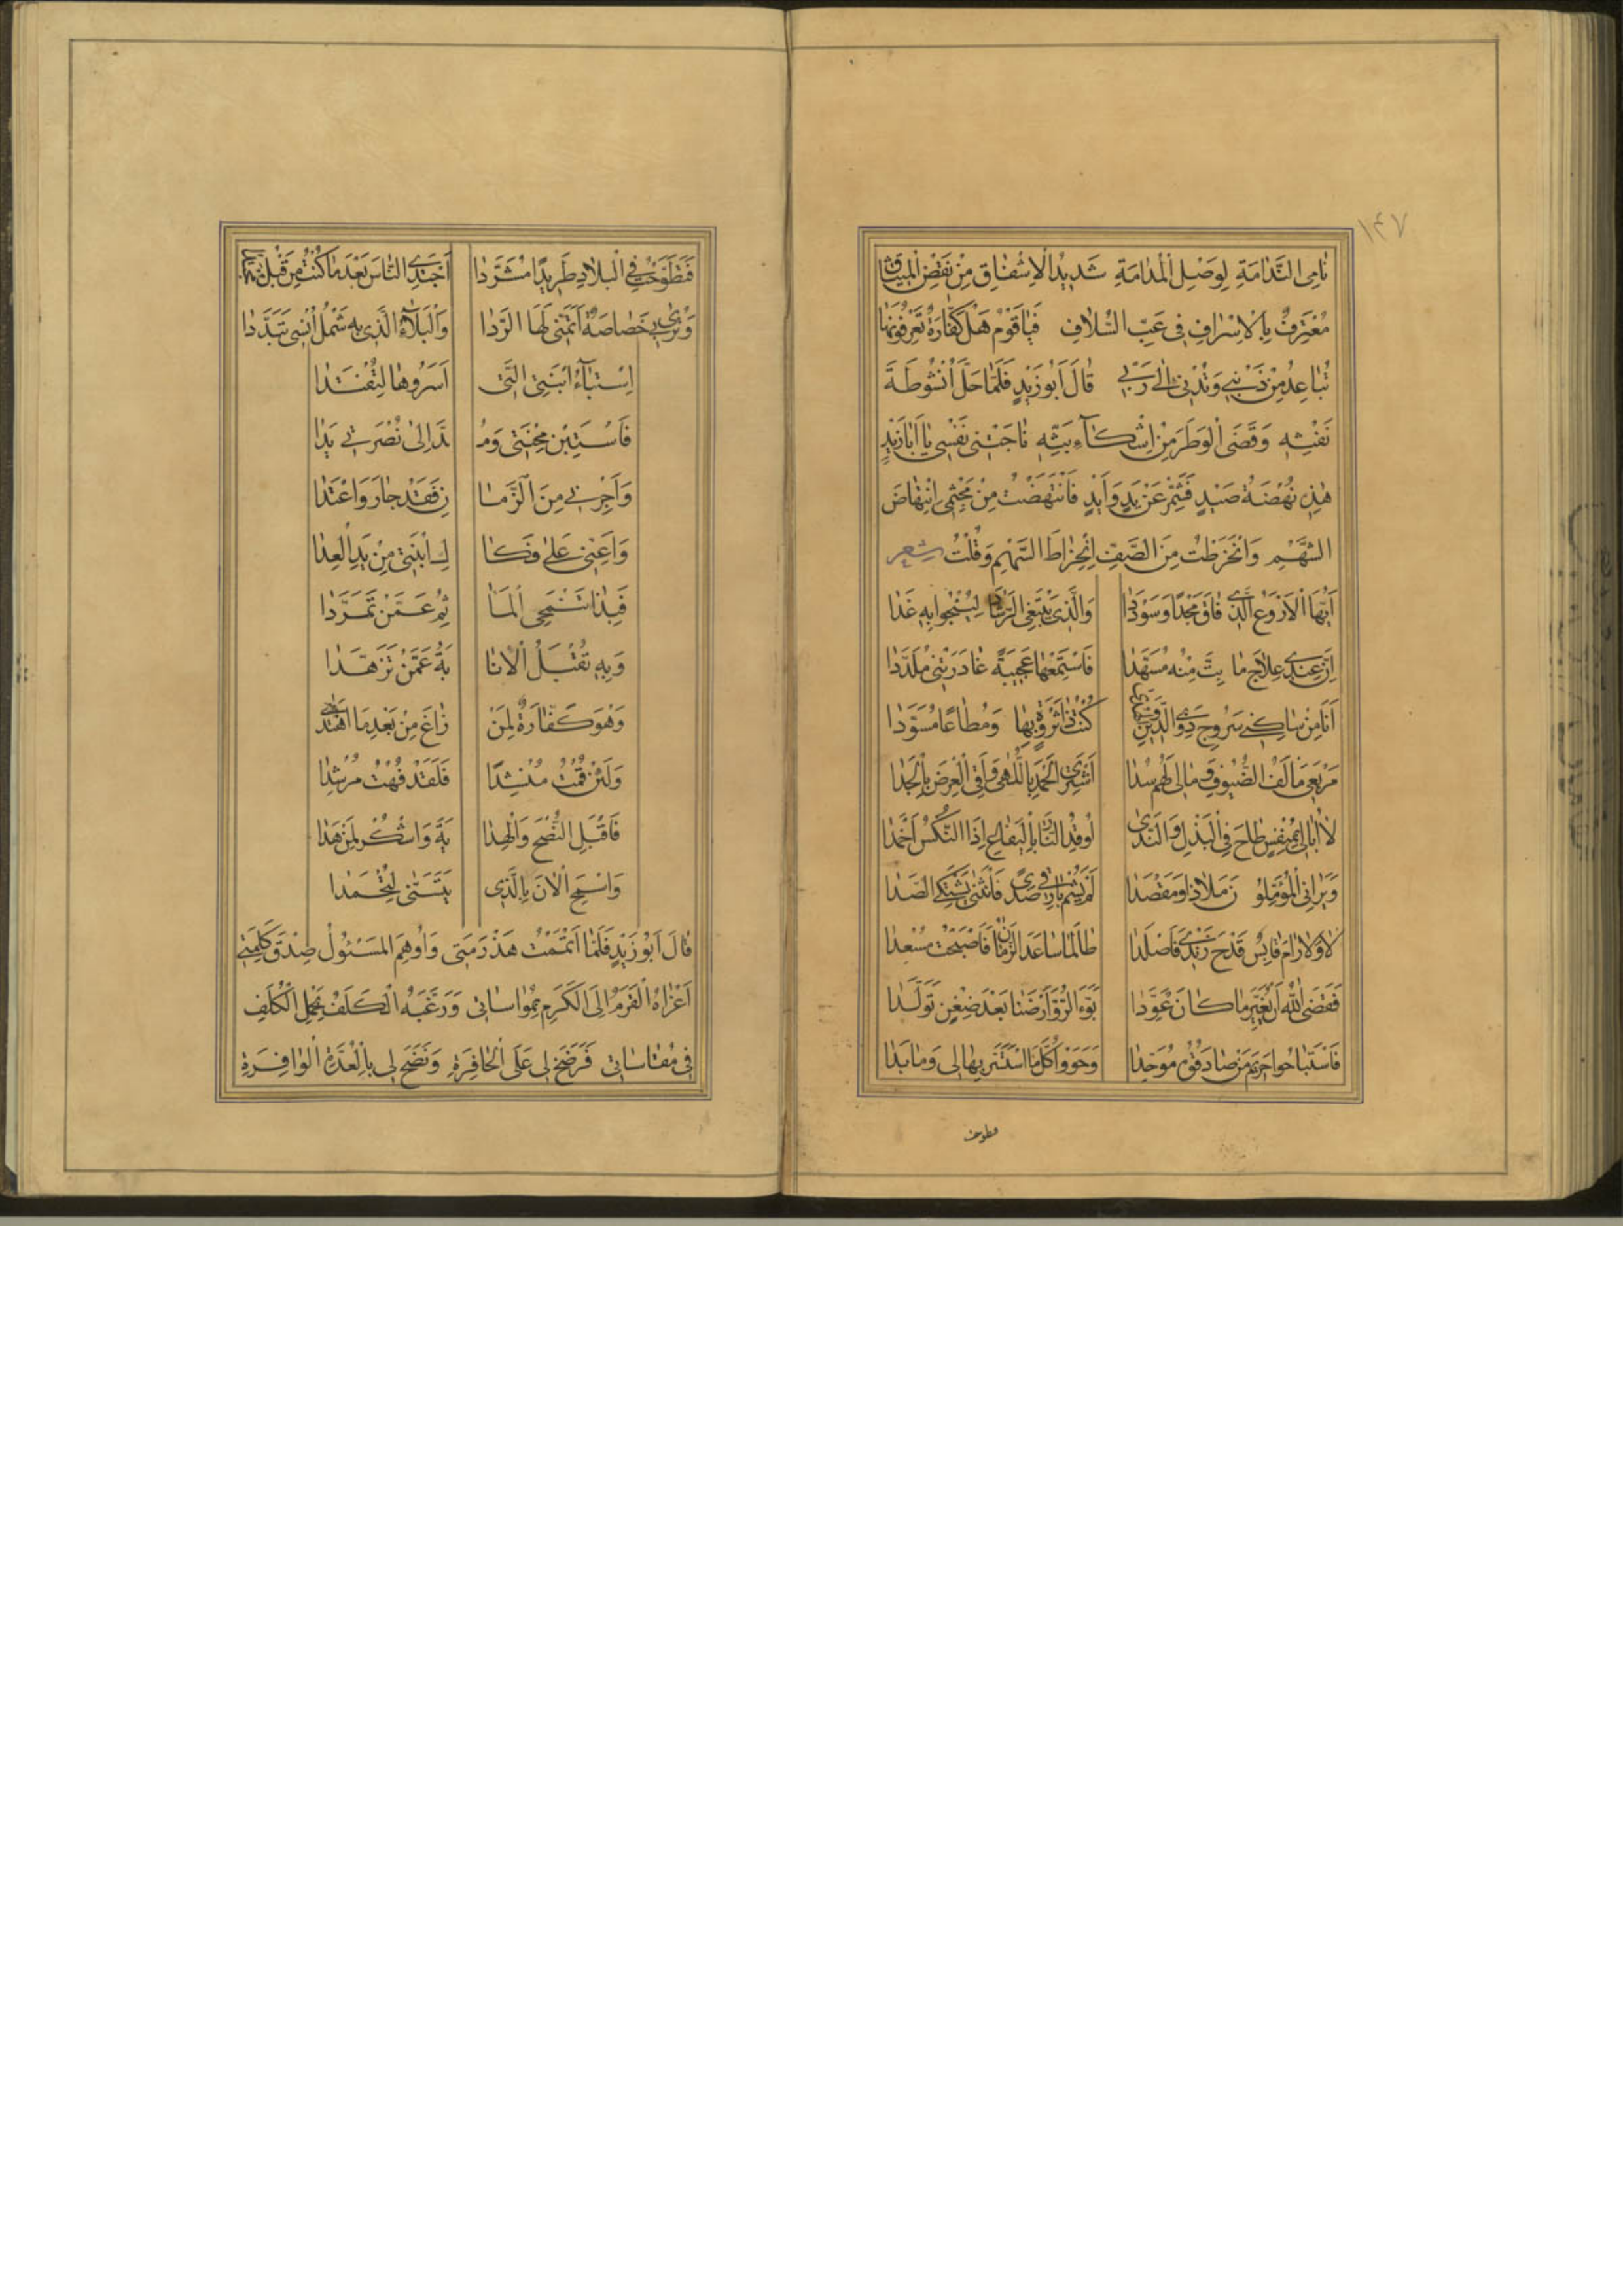 ١٤٧
نَامِى النَّدَامَةِ لِوَصْلِ الْمُدَامَةِ شَدِيْدُ الْاِشْفَاقِ مِنْ نَقْضِ الْمِيثَاقِ
مُعْتَرِفٌ بِالْاِسْرَافِ فِى عَبِّ السُّلَافِ فَيَا قَوْمُ هَلْ كَفَّارَةٌ تَعْرِفُونَهَا
تُبَاعِدُ مِنْ ذَنْبِى وَتُدْنِى اِلٰى رَبِّى قَالَ اَبُو زَيْدٍ فَلَمَّا حَلَّ اُنْشُوطَةَ
نَفْثِهِ وَقَضَى الْوَطَرَ مِنْ اِشْتِكَآءِ بَثِّهِ نَاجَتْنِى نَفْسِى يَا اَبَا زَيْدٍ
هٰذِهِ نُهْضَةُ صَيْدٍ فَشَمِّرْ عَنْ يَدٍ وَاَيْدٍ فَانْتَهَضْتُ مِنْ مَجْثِمِى انْتِهَاضَ
الشَّهْمِ وَانْخَرَطْتُ مِنَ الصَّفِّ اِنْخِرَاطَ السَّهْمِ وَقُلْتُ شعر
اَيُّهَا الْاَرْوَعُ الَّذِى فَاقَ مَجْدًا وَسُوْدَدَا وَالَّذِى يَبْتَغِى الرَّشَادَ لِيَنْجُو بِهِ غَدَا
اِنَّ عِنْدِى عِلَاجَ مَا بِتَّ مِنْهُ مُسَهَّدَا فَاسْتَمِعْهَا عَجِيبَةً غَادَرَتْنِى مُلَدَّدَا
اَنَا مِنْ سَاكِنِى سَرُوجَ ذَوِى الدِّينِ وَالْهُدَى كُنْتُ ذَا ثَرْوَةٍ بِهَا وَمُطَاعًا مُسَوَّدَا
مَرْبَعِى مَأْلَفُ الضُّيُوفِ وَمَالِى لَهُمْ سُدَا اَشْتَرِى الْحَمْدَ بِاللُّهَى وَاَقِى الْعِرْضَ بِالْجَدَا
لَا اُبَالِى بِمُنْفِسٍ طَاحَ فِى الْبَذْلِ وَالنَّدَى اُوقِدُ النَّارَ بِالْيَفَاعِ اِذَا النِّكْسُ اَخْمَدَا
وَيَرَانِى الْمُؤَمِّلُونَ مَلَاذًا وَمَقْصَدَا لَمْ يَشِمْ بَارِقِى صَدٍ فَانْثَنَى يَشْتَكِى الصَّدَا
لَا وَلَا رَامَ قَابِسٌ قَدْحَ زَنْدِى فَاَصْلَدَا طَالَمَا سَاعَدَ الزَّمَانُ فَاَصْبَحْتُ مُسْعِدَا
فَقَضَى اللّٰهُ اَنْ يُغَيِّرَ مَا كَانَ عَوَّدَا بَوَّءَ الرُّوْمَ اَرْضَنَا بَعْدَ ضِغْنٍ تَوَلَّدَا
فَاسْتَبَاحُوا حَرِيْمَ مَنْ صَادَفُوْهُ مُوَحِّدَا وَحَوَوْا كُلَّ مَا اسْتَسَرَّ بِهَا لِى وَمَا بَدَا
فطوحت
فَتَطَوَّحْتُ فِى الْبِلَادِ طَرِيدًا مُشَرَّدَا اَجْتَدِى النَّاسَ بَعْدَ مَا كُنْتُ مِنْ قَبْلُ مُجْتَدَا
وَتُرٰى بِى خَصَاصَةٌ اَتَمَنَّى لَهَا الرَّدَا وَالْبَلَآءُ الَّذِى بِهِ شَمْلُ اُنْسِى تَبَدَّدَا
اِسْتِبَآءُ ابْنَتِى الَّتِى اَسَرُوهَا لِتُفْتَدَا
فَاسْتَبِنْ مِحْنَتِى وَمُدَّ اِلٰى نُصْرَتِى يَدَا
وَاَجِرْنِى مِنَ الزَّمَانِ فَقَدْ جَارَ وَاعْتَدَا
وَاَعِنِّى عَلٰى فَكَاكِ ابْنَتِى مِنْ يَدِ الْعِدَا
فَبِذَا تَنْمَحِى الْمَآثِمُ عَمَّنْ تَمَرَّدَا
وَبِهِ تُقْبَلُ الْاِنَابَةُ عَمَّنْ تَزَهَّدَا
وَهْوَ كَفَّارَةٌ لِمَنْ زَاغَ مِنْ بَعْدِ مَا اهْتَدَى
وَلَئِنْ قُمْتُ مُنْشِدًا فَلَقَدْ فُهْتُ مُرْشِدَا
فَاقْبَلِ النُّصْحَ وَالْهِدَايَةَ وَاشْكُرْ لِمَنْ هَدَا
وَاسْمَحِ الْاٰنَ بِالَّذِى يَتَسَنَّى لِتُحْمَدَا
قَالَ اَبُوْ زَيْدٍ فَلَمَّا اَتْمَمْتُ هَذْرَمَتِى وَاُوهِمَ الْمَسْئُولُ صِدْقَ كَلِمَتِى
اَغْرَاهُ الْقَرَمُ اِلَى الْكَرَمِ بِمُوَاسَاتِى وَرَغَّبَهُ الْكَلَفُ بِحَمْلِ الْكُلَفِ
فِى مُقَاسَاتِى فَرَضَخَ لِى عَلَى الْحَافِرَةِ وَنَضَحَ لِى بِالْعِدَةِ الْوَافِرَةِ